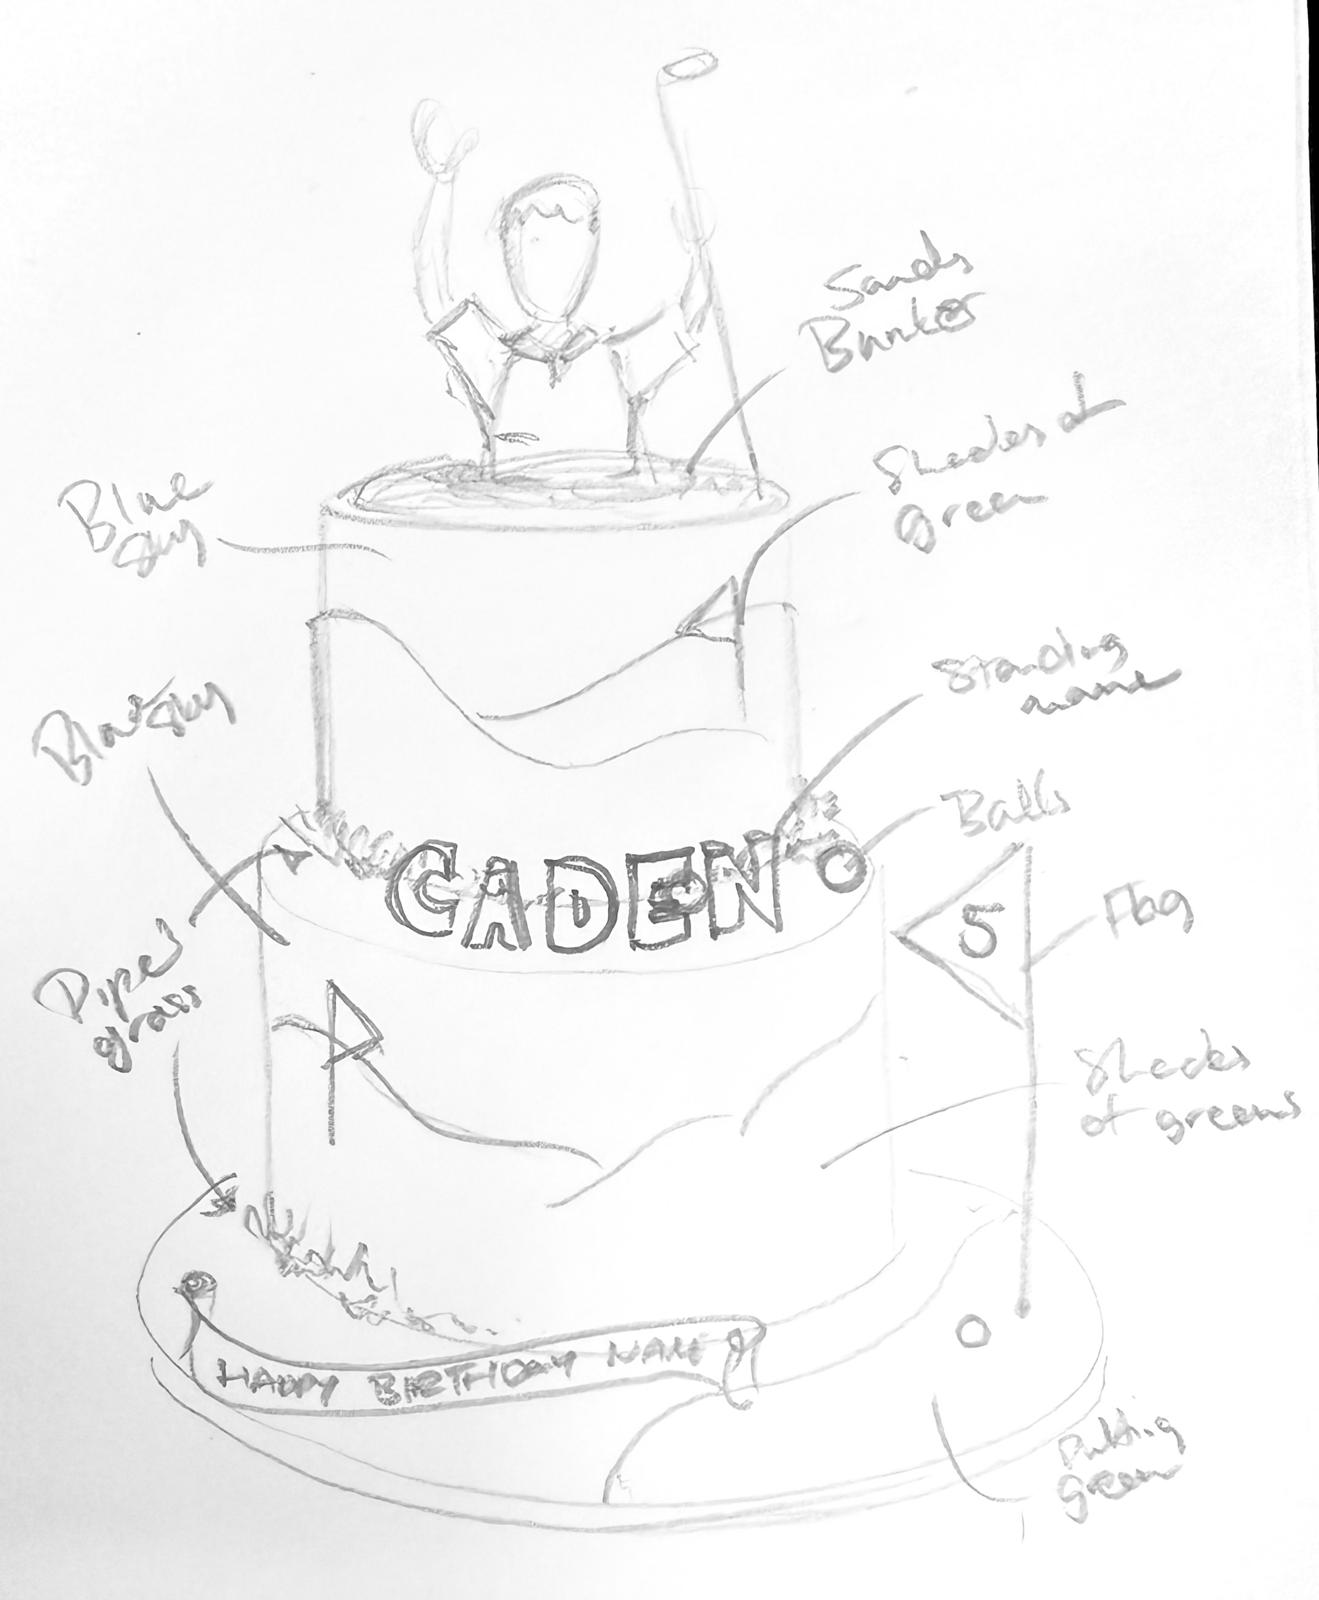 Sands
Bunker
Shades of
green
Blue
Sky
Standing
name
Blue Sky
Balls
CADEN
5
Flag
Piped
grass
Shades
of greens
HAPPY BIRTHDAY NAME
Putting
green